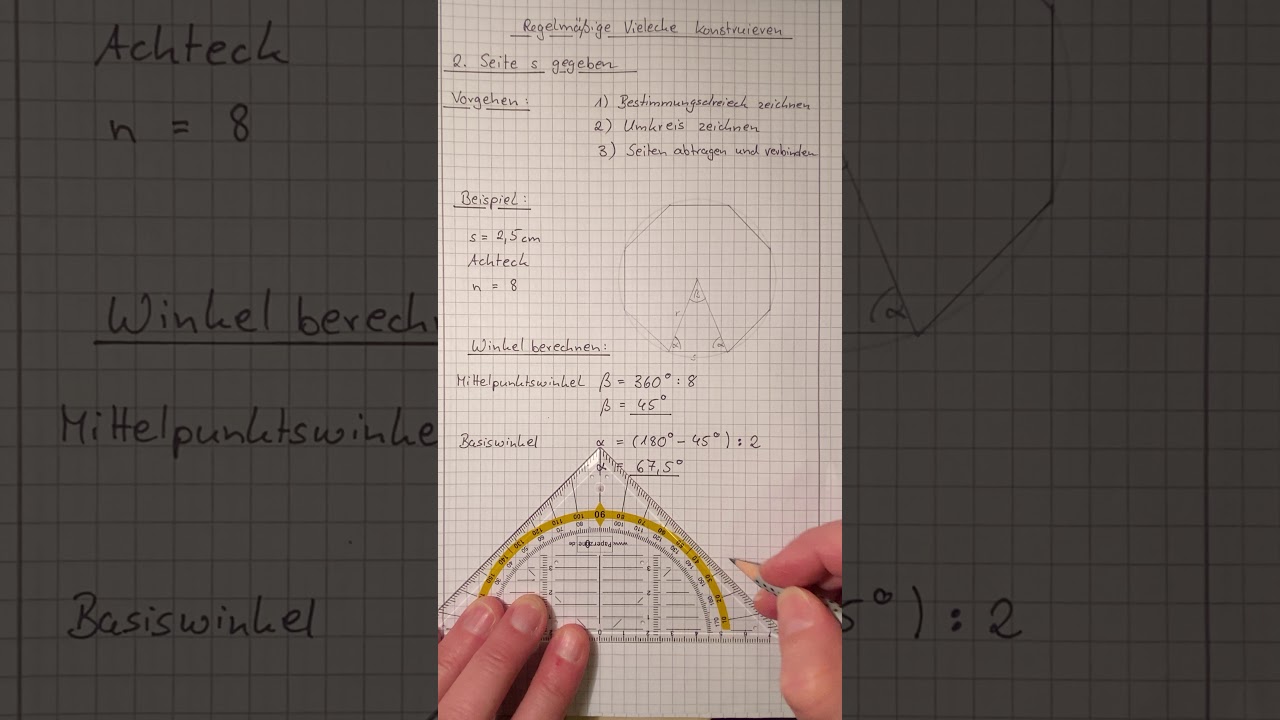 Regelmäßige Vielecke konstruieren
2. Seite s gegeben
Vorgehen:
1) Bestimmungsdreieck zeichnen
2) Umkreis zeichnen
3) Seiten abtragen und verbinden
Beispiel:
s = 2,5 cm
Achteck
n = 8
β
r
α
α
s
Winkel berechnen:
Mittelpunktswinkel β = 360° : 8
β = 45°
Basiswinkel α = (180° - 45°) : 2
α = 67,5°
www.Paperzone.de
Achteck
n = 8
Winkel berech
Mittelpunktswinke
Basiswinkel
α
5°) : 2